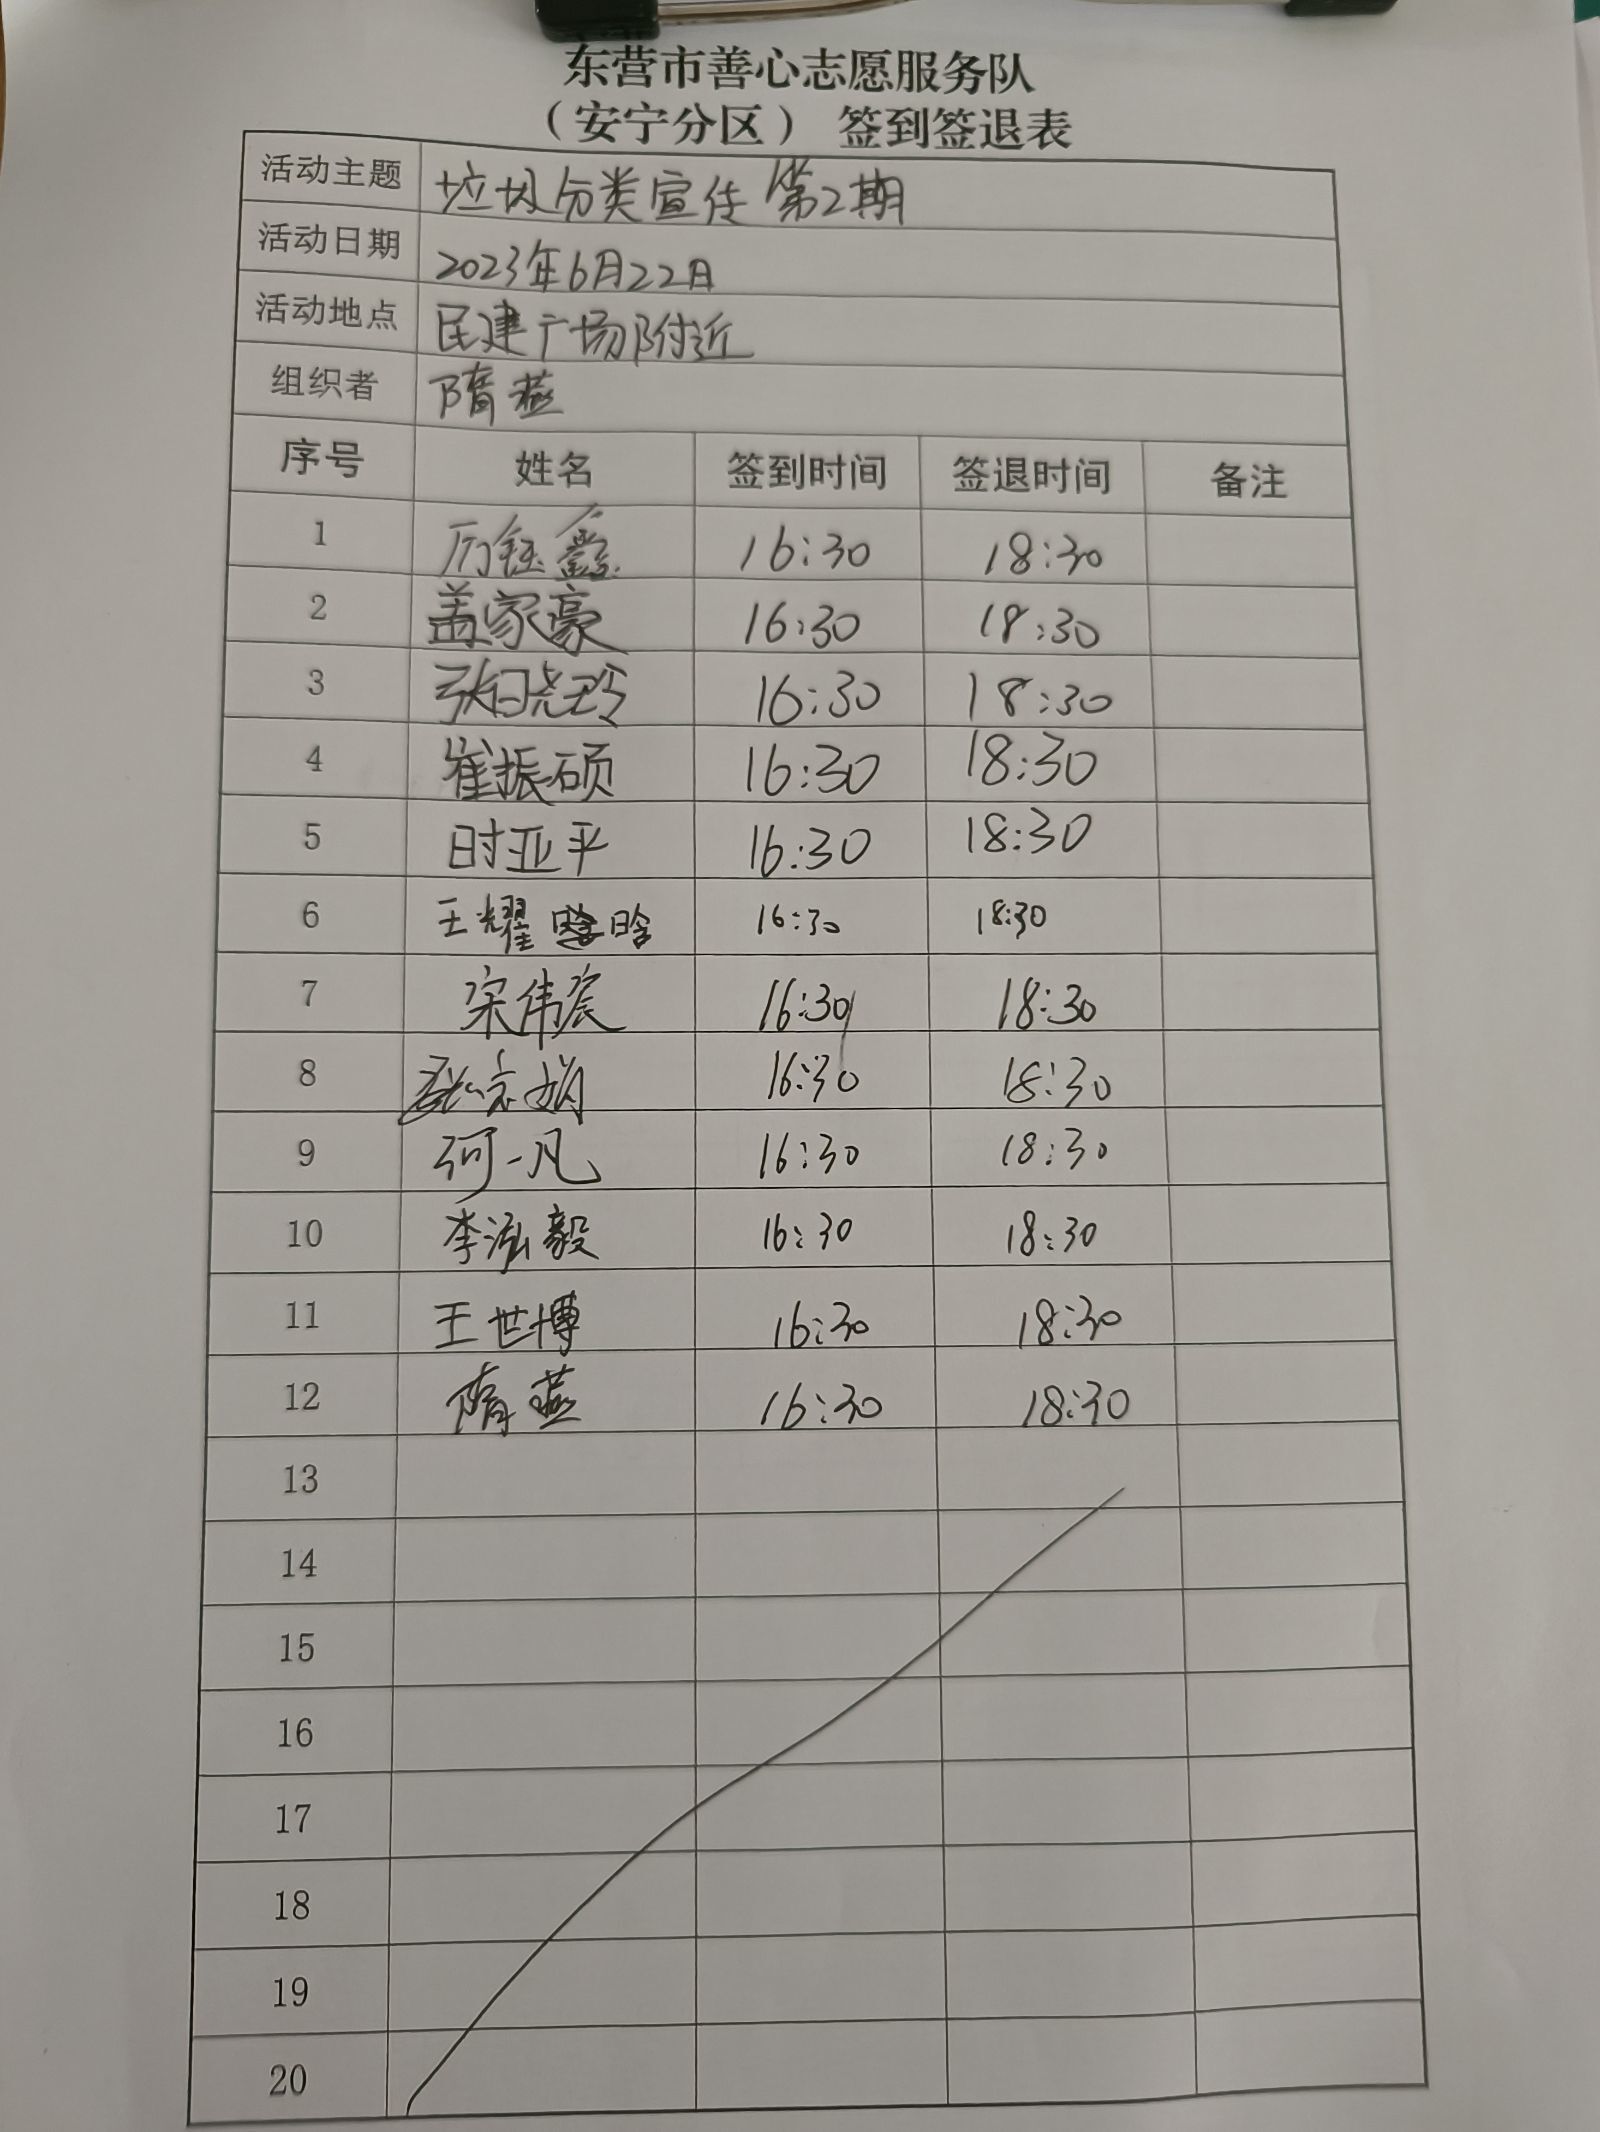 东营市善心志愿服务队
（安宁分区） 签到签退表
活动主题 垃圾分类宣传 第2期
活动日期 2023年6月22日
活动地点 民建广场附近
组织者 隋燕
序号 姓名 签到时间 签退时间 备注
1 厉钰鑫 16:30 18:30
2 盖家豪 16:30 18:30
3 张晓玲 16:30 18:30
4 崔振硕 16:30 18:30
5 时亚平 16:30 18:30
6 王耀晗 16:30 18:30
7 宋伟宸 16:30 18:30
8 16:30 18:30
9 一凡 16:30 18:30
10 李泓毅 16:30 18:30
11 王世博 16:30 18:30
12 隋燕 16:30 18:30
13
14
15
16
17
18
19
20